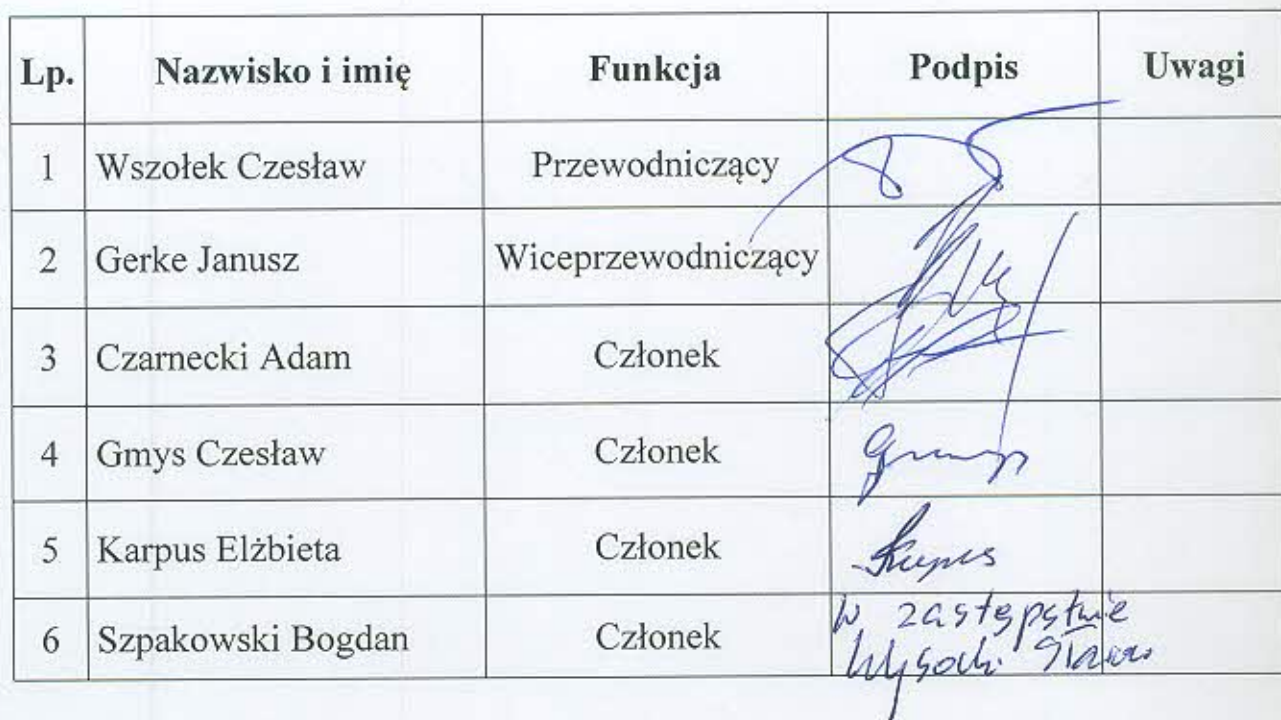 Lp. Nazwisko i imię Funkcja Podpis Uwagi
1 Wszołek Czesław Przewodniczący
2 Gerke Janusz Wiceprzewodniczący
3 Czarnecki Adam Członek
4 Gmys Czesław Członek
5 Karpus Elżbieta Członek
6 Szpakowski Bogdan Członek w zastępstwie